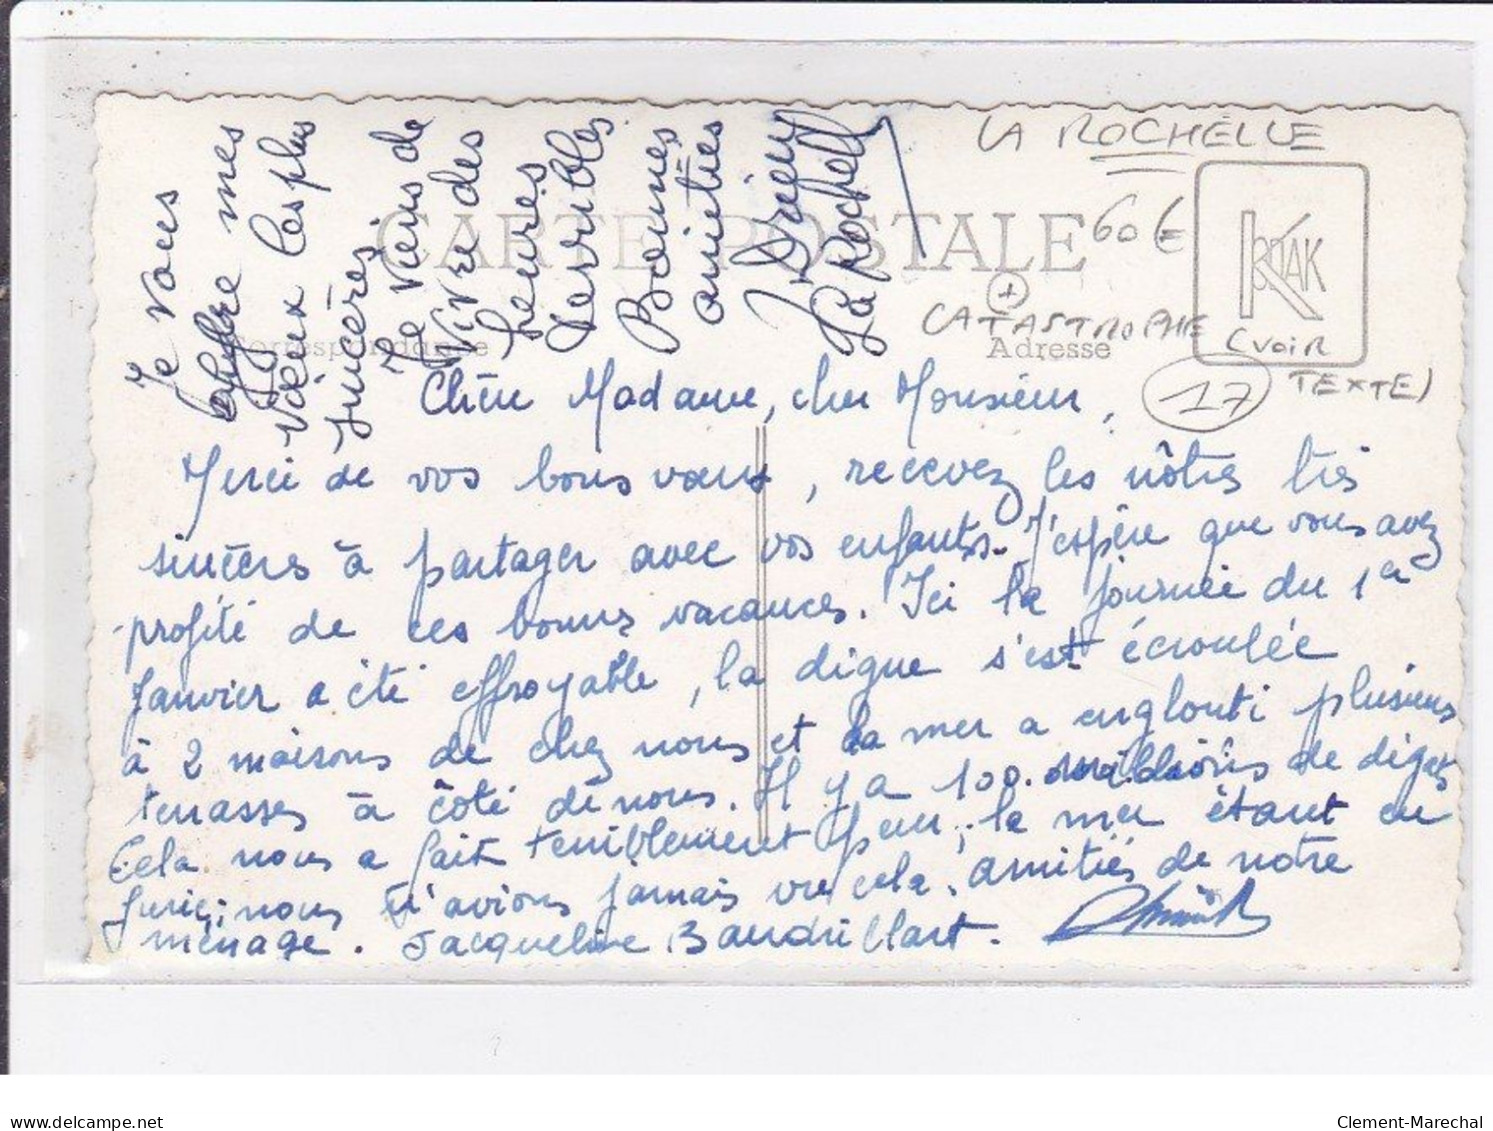 LA ROCHELLE
60 €
CARTE POSTALE
KODAK
+
CATASTROPHE
(VOIR
TEXTE)
17
Correspondance
Adresse
Je vous
offre mes
vœux les plus
sincères
Je viens de
vivre des
heures
terribles
Bonnes
amitiés
La Rochelle
Chère Madame, cher Monsieur,
Merci de vos bons vœux, recevez les nôtres très
sincères à partager avec vos enfants. J'espère que vous avez
profité de ces bonnes vacances. Ici la journée du 1er
Janvier a été effroyable, la digue s'est écroulée
à 2 maisons de chez nous et la mer a englouti plusieurs
terrasses à côté de nous. Il y a 100 millions de dégats
Cela nous a fait terriblement peur, la mer étant en
furie; nous n'avions jamais vu cela. amitiés de notre
ménage. Jacqueline Baudrillart.
delcampe.net
Clement-Marechal